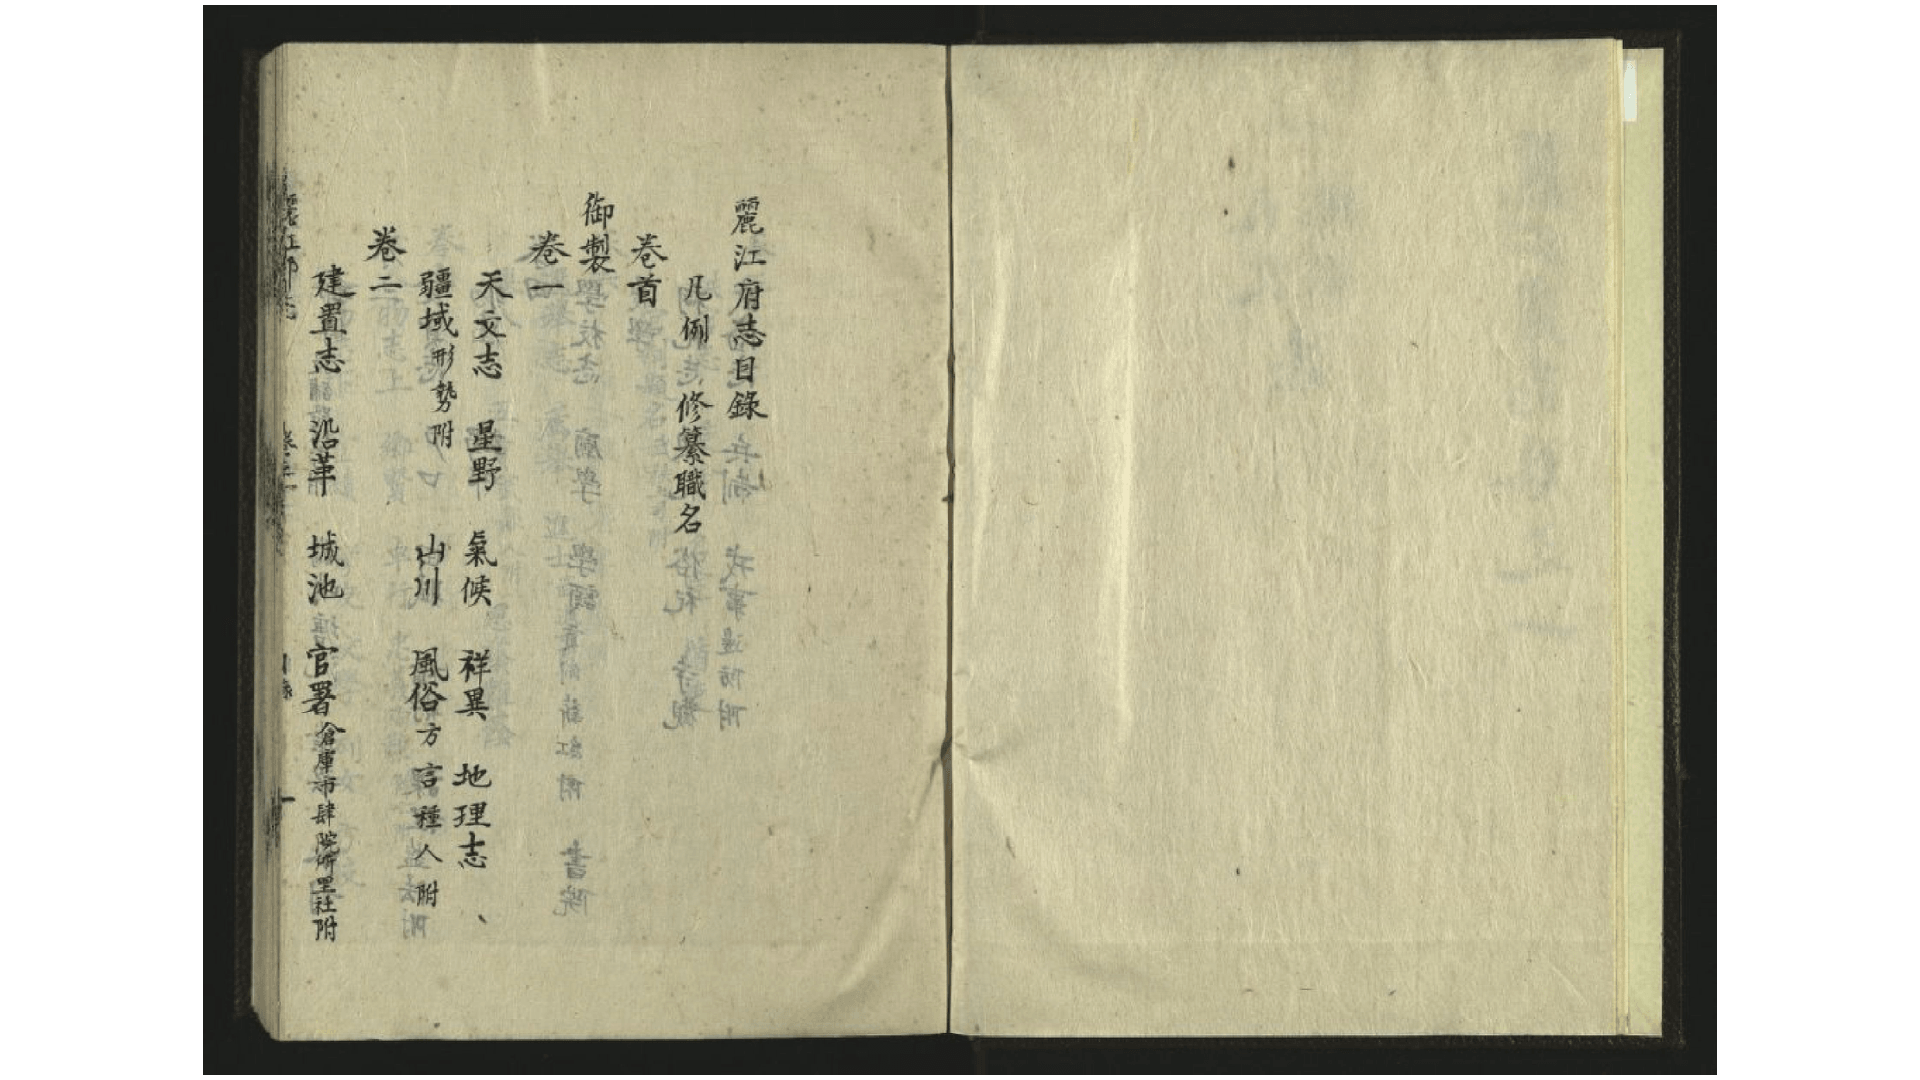 麗江府志目錄
凡例 修纂職名
卷首
御製
卷一
天文志 星野 氣候 祥異 地理志
疆域形勢附 山川 風俗方言種人附
卷二
建置志 沿革 城池 官署倉庫市肆院附里社附